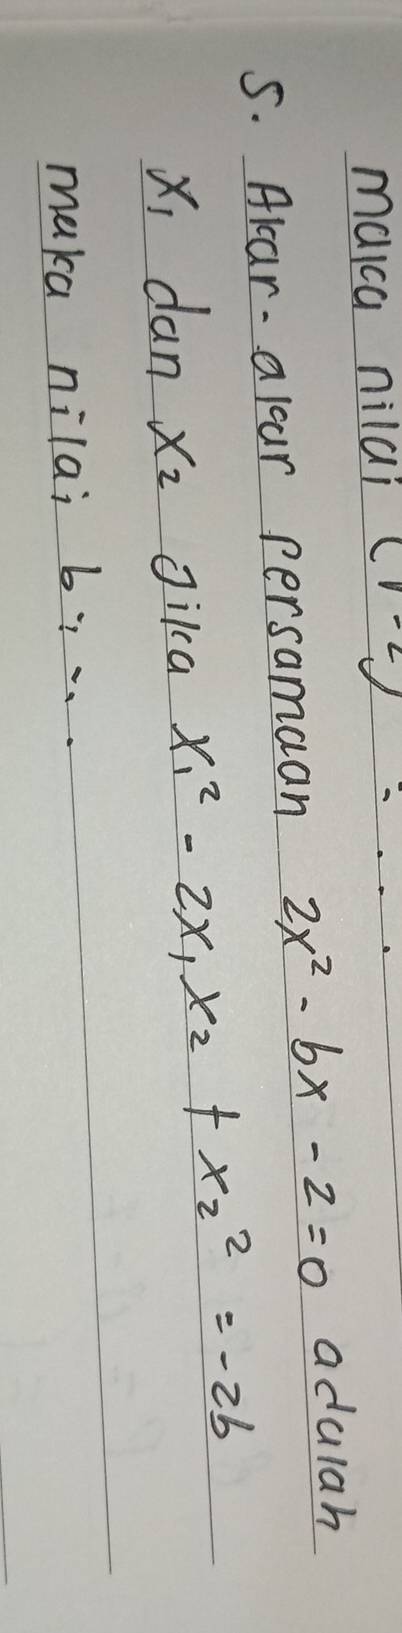 maka nilai (1-2) : ...
5. Akar-akar persamaan 2x² - bx - 2 = 0 adalah
x₁ dan x₂ Jika x₁² - 2x₁x₂ + x₂² = -2b
maka nilai b : ...